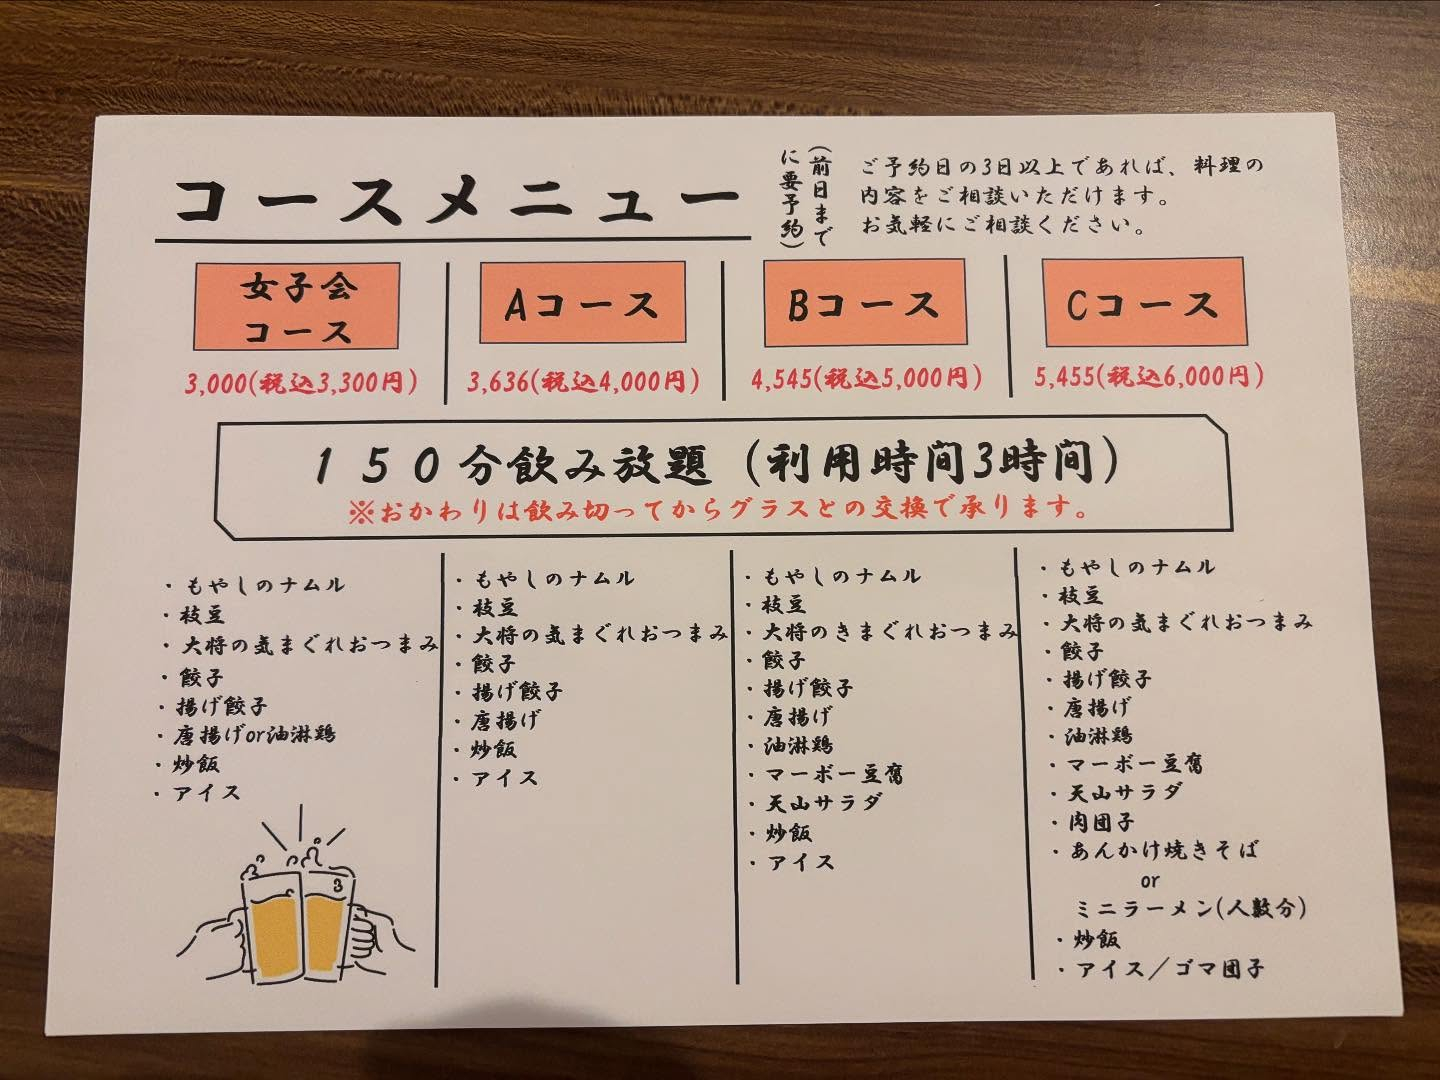 コースメニュー
(前日まで
に要予約)
ご予約日の3日以上であれば、料理の
内容をご相談いただけます。
お気軽にご相談ください。
女子会
コース
3,000(税込3,300円)
Aコース
3,636(税込4,000円)
Bコース
4,545(税込5,000円)
Cコース
5,455(税込6,000円)
１５０分飲み放題（利用時間3時間）
※おかわりは飲み切ってからグラスとの交換で承ります。
・もやしのナムル
・枝豆
・大将の気まぐれおつまみ
・餃子
・揚げ餃子
・唐揚げor油淋鶏
・炒飯
・アイス
・もやしのナムル
・枝豆
・大将の気まぐれおつまみ
・餃子
・揚げ餃子
・唐揚げ
・炒飯
・アイス
・もやしのナムル
・枝豆
・大将のきまぐれおつまみ
・餃子
・揚げ餃子
・唐揚げ
・油淋鶏
・マーボー豆腐
・天山サラダ
・炒飯
・アイス
・もやしのナムル
・枝豆
・大将の気まぐれおつまみ
・餃子
・揚げ餃子
・唐揚げ
・油淋鶏
・マーボー豆腐
・天山サラダ
・肉団子
・あんかけ焼きそば
or
ミニラーメン(人数分)
・炒飯
・アイス／ゴマ団子